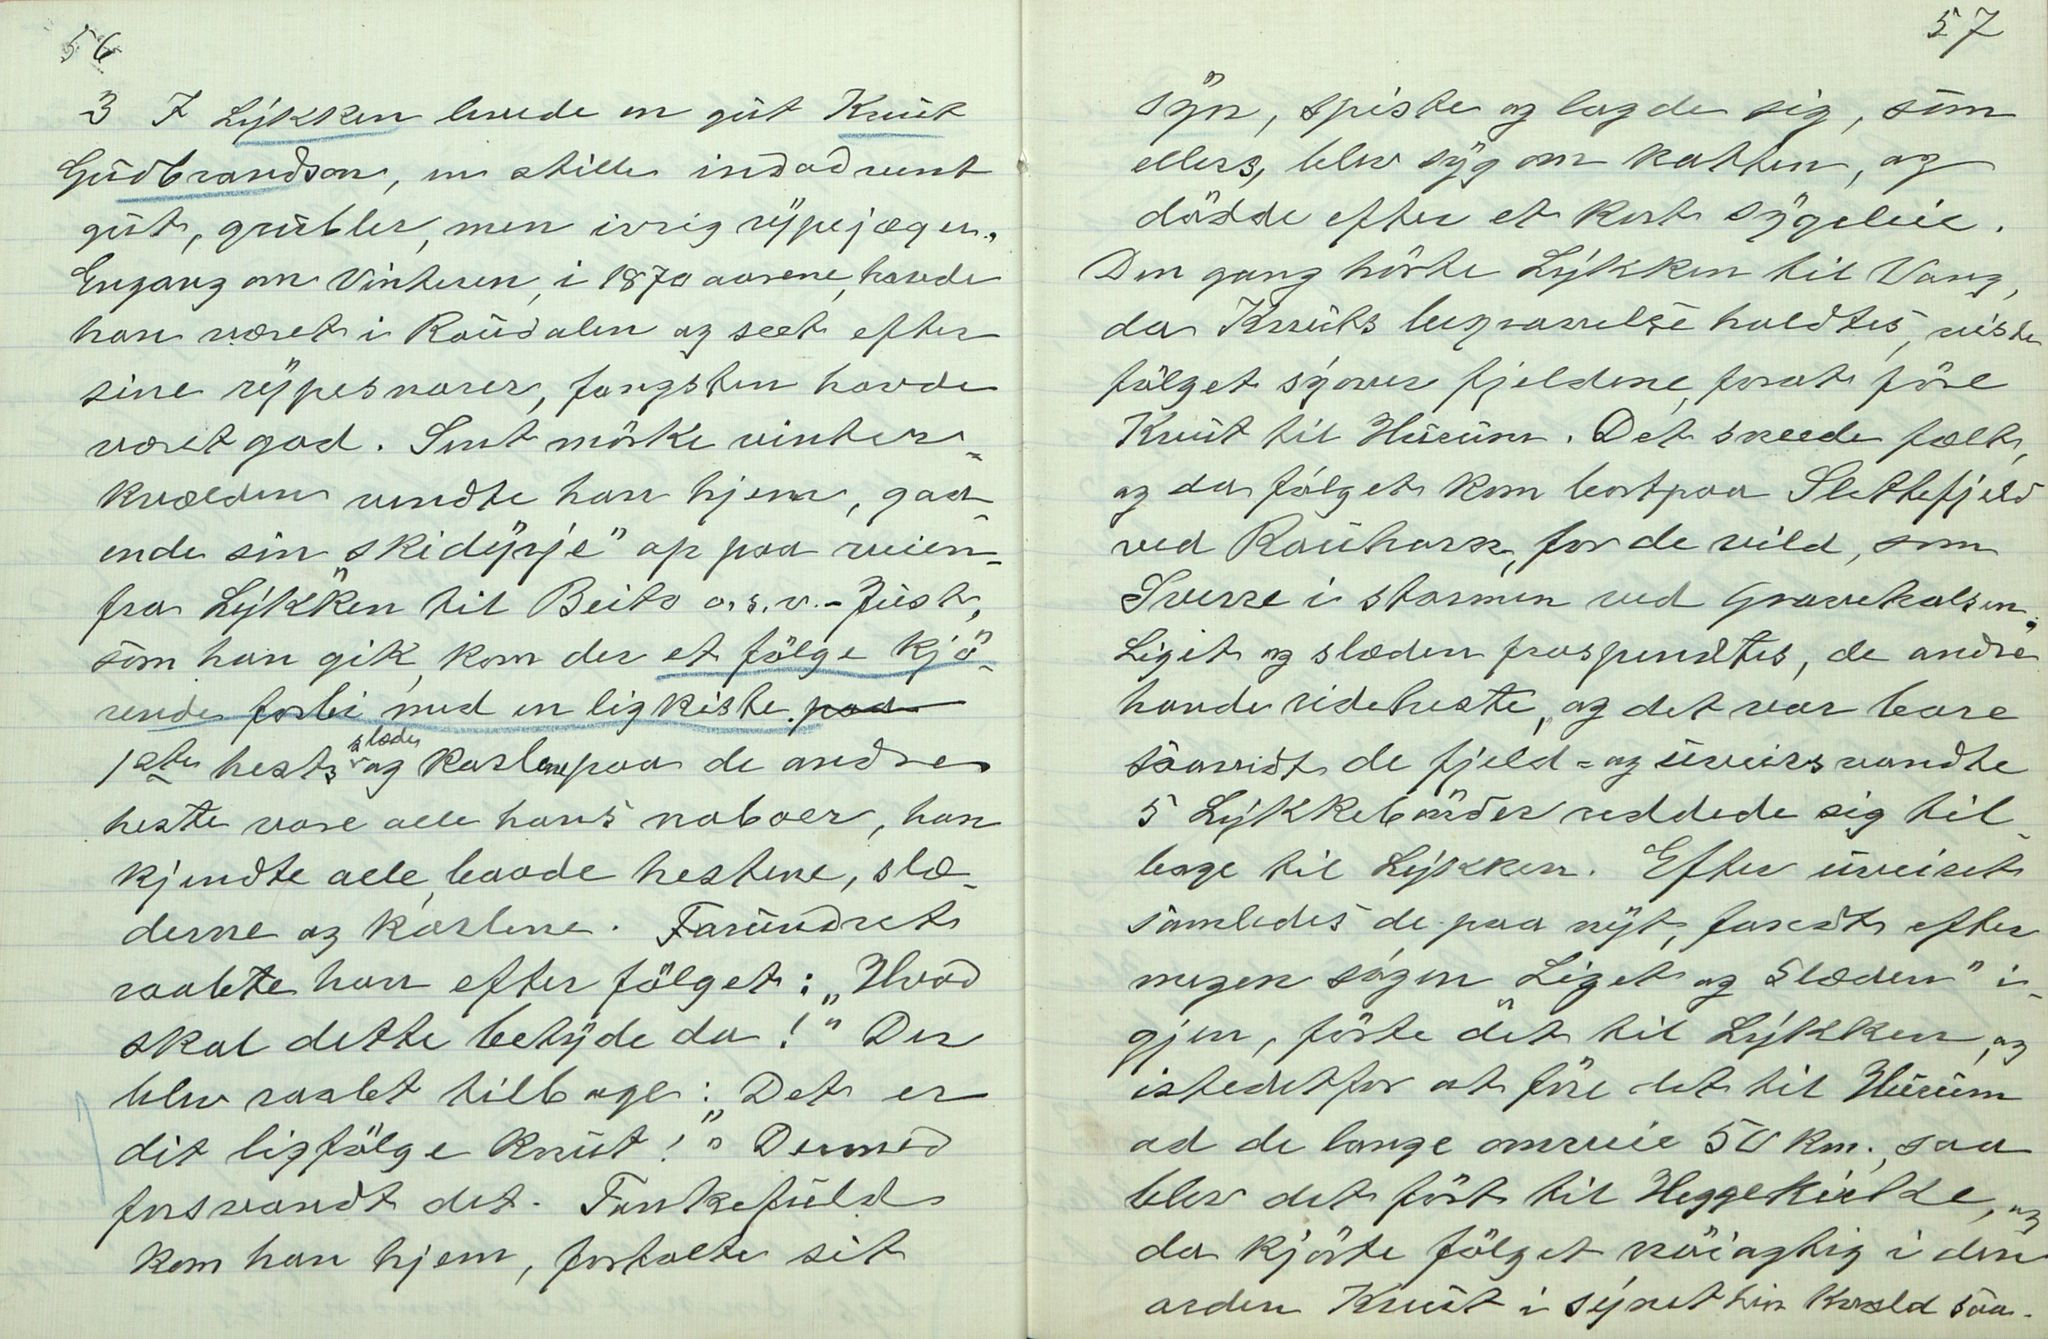 56
3 I Lykken levede en gut Knut
Gudbrandson, en stille indadvent
gut, grubler, men ivrig rypejæger.
Engang om Vinteren, i 1870 aarene, havde
han været i Raudalen og seet efter
sine rypesnarer, fangsten havde
været god. Sent mörke vinter-
kvælden vendte han hjem, gaa-
ende sin "skidyrje" op paa veien
fra Lykken til Beito o.s.v. - Just,
som han gik, kom der et fölge kjö-
rende forbi med en ligkiste. paa
1ste hests slæde og karlene paa de andre
heste vare alle hans naboer, han
kjendte alle baade hestene, slæ-
derne og karlene. Forundret
raabte han efter fölget: "Hvad
skal dette betyde da!" Der
blev raabt tilbage: "Det er
dit ligfölge Knut!" Dermed
forsvandt det. Tankefuld
kom han hjem, fortalte sit
57
syn, spiste og lagde sig, som
ellers, blev syg om natten, og
dödde efter et kort sygeleie.
Den gang hörte Lykken til Vang,
da Knuts begravelse holdtes, reiste
fölget syover fjeldene, forat före
Knut til Hurum. Det sneede fælt,
og da fölget kom bortpaa Slettefjeld
ved Rauhorn, for de vild, som
Sverre i stormen ved Gravehalsen.
Liget og slæden fraspendtes, de andre
havde rideheste, og det var bare
saavidt de fjeld- og uveirsvandte
5 Lykkebönder reddede sig til-
bage til Lykken. Efter uveiret
samledes de paa nyt, fandt efter
megen sögen Liget og Slæden i-
gjen, förte det til Lykken, og
istedetfor at före det til Hurum
ad de lange omveie 50 km., saa
blev det fört til Heggekirke, og
da kjörte fölget nöiagtig i den
orden Knut i synet hin kvæld saa.